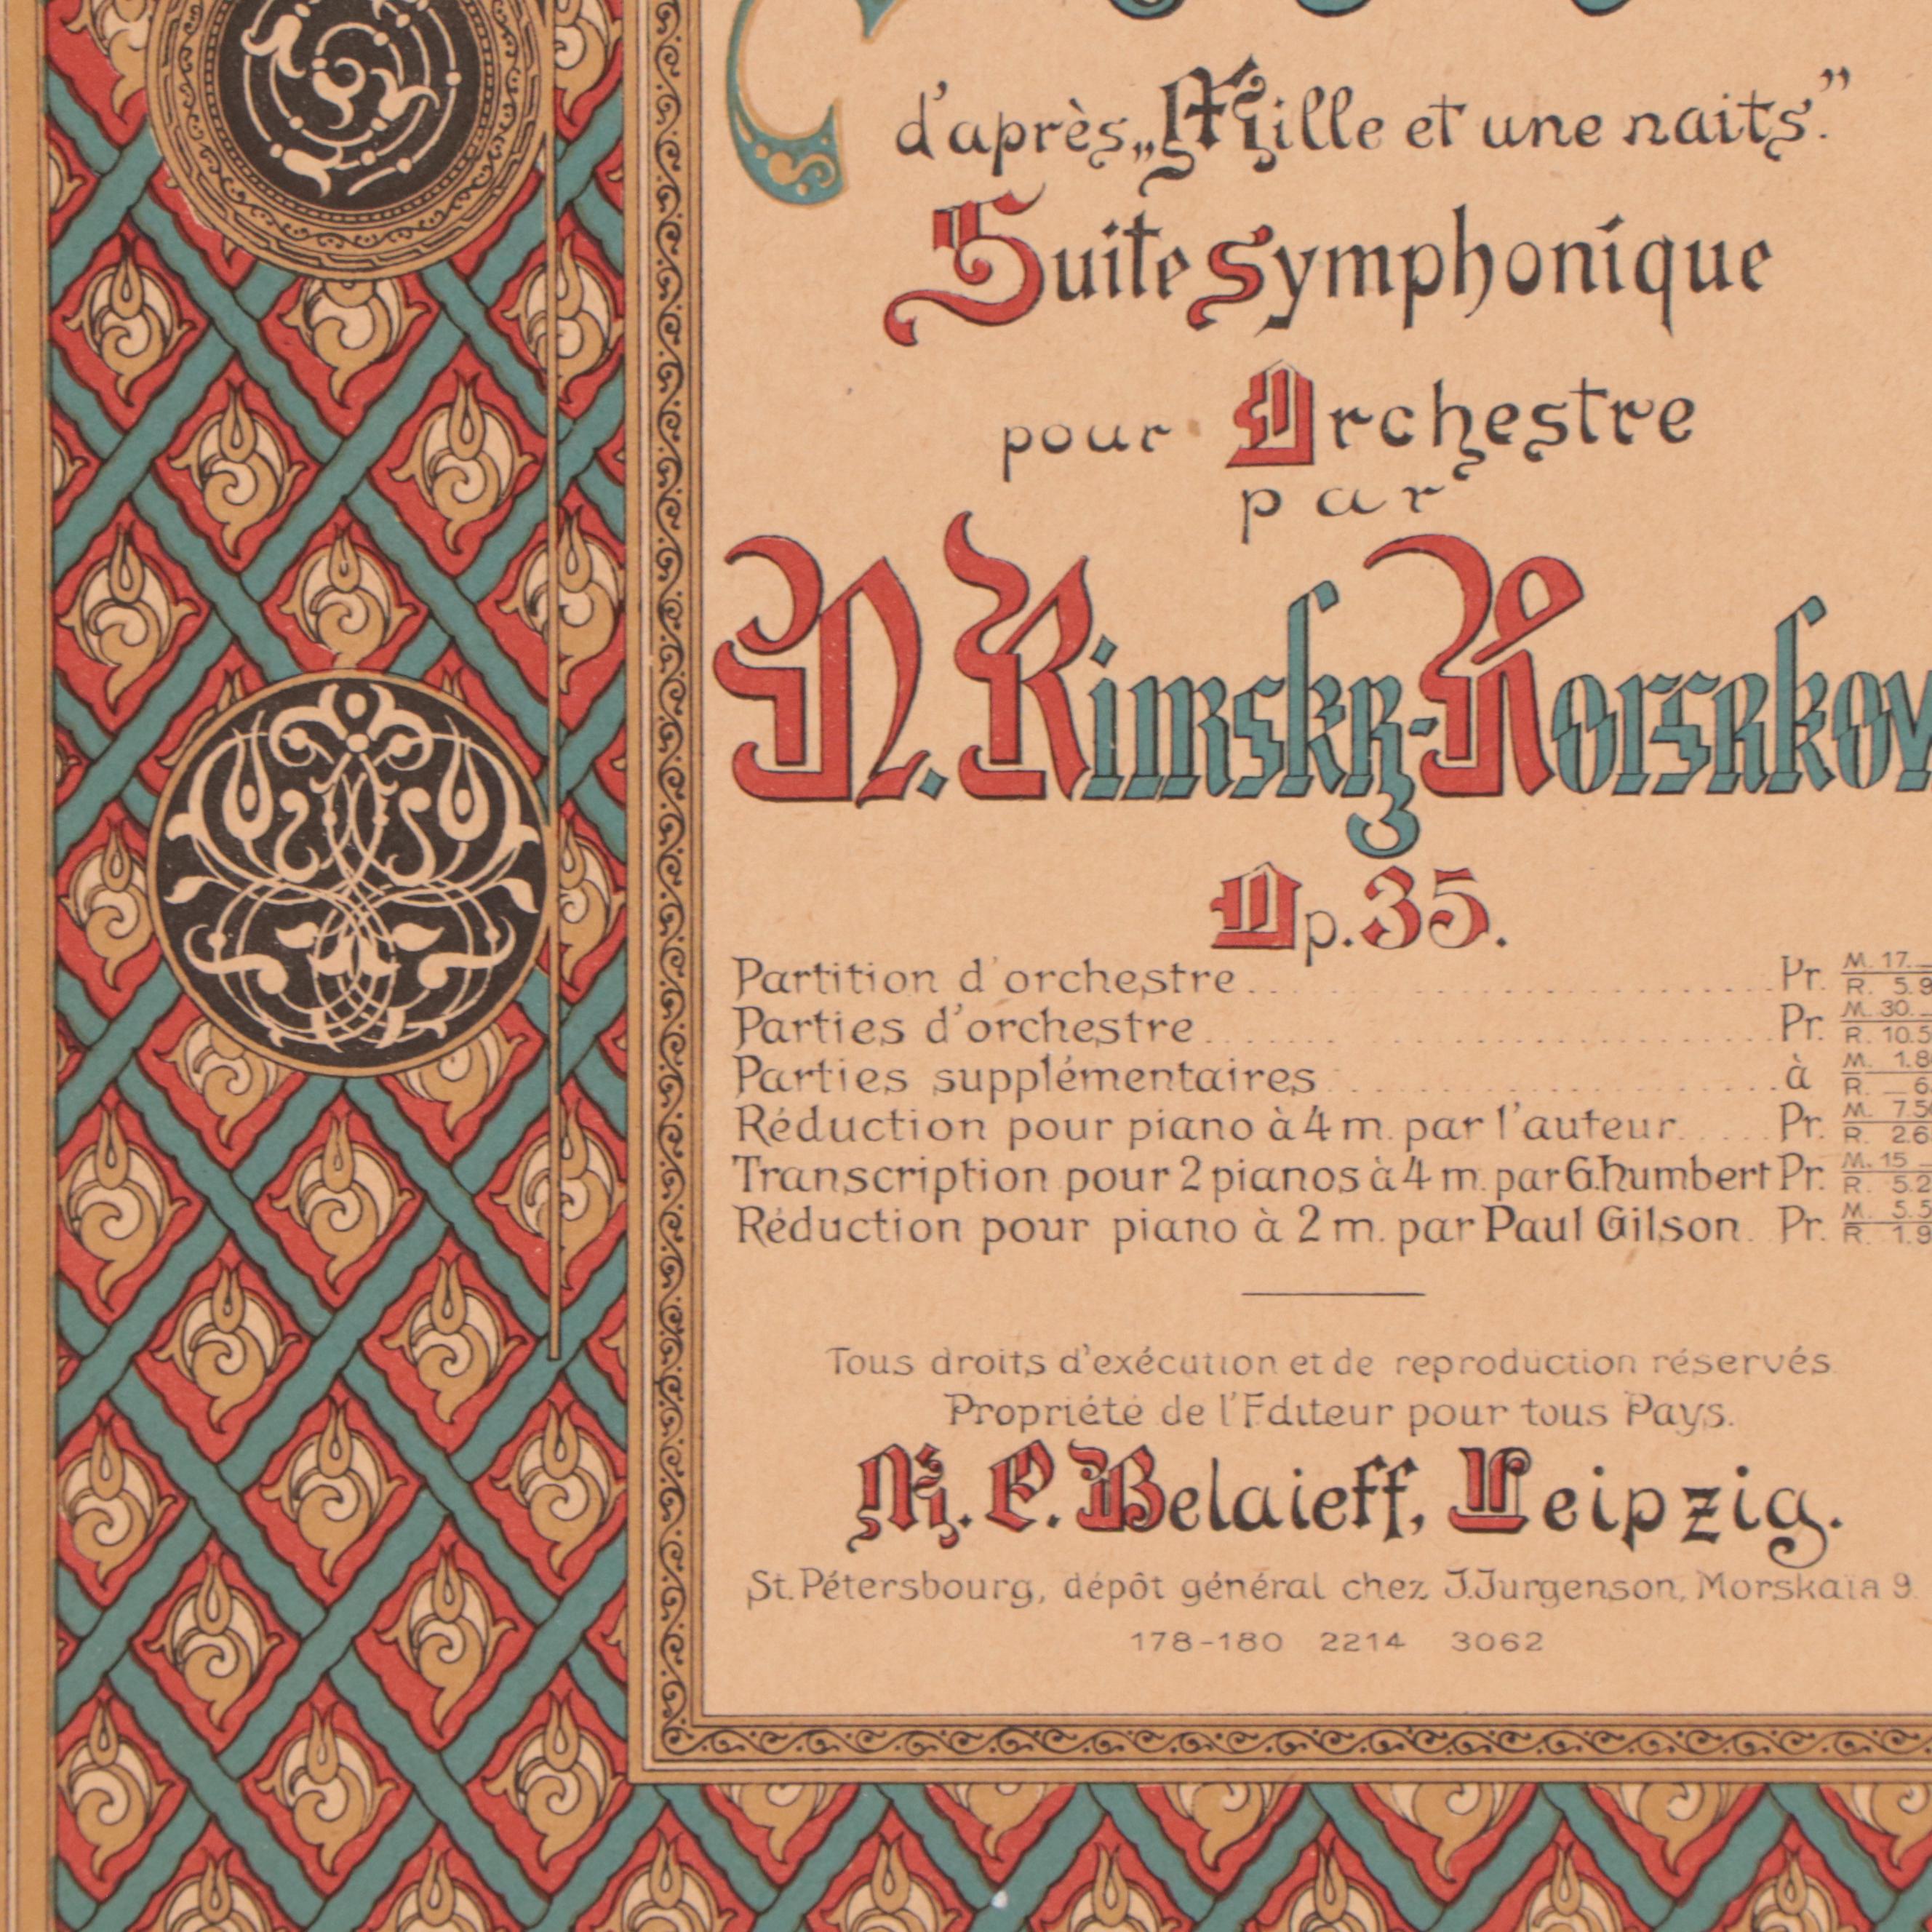 d'après „Mille et une naits.”
Suite symphonique
pour Orchestre
par
N. Rimsky-Korsakov
Op. 35.
Partition d'orchestre Pr. M. 17.
R. 5.9
Parties d'orchestre Pr. M. 30.
R. 10.5
Parties supplémentaires à M. 1.8
R. 6
Réduction pour piano à 4 m. par l'auteur Pr. M. 7.5
R. 2.6
Transcription pour 2 pianos à 4 m. par G. humbert Pr. M. 15
R. 5.2
Réduction pour piano à 2 m. par Paul Gilson. Pr. M. 5.5
R. 1.9
Tous droits d'exécution et de reproduction réservés.
Propriété de l'Editeur pour tous Pays.
M. P. Belaieff, Leipzig.
St. Pétersbourg, dépôt général chez J. Jurgenson, Morskaïa 9.
178-180 2214 3062